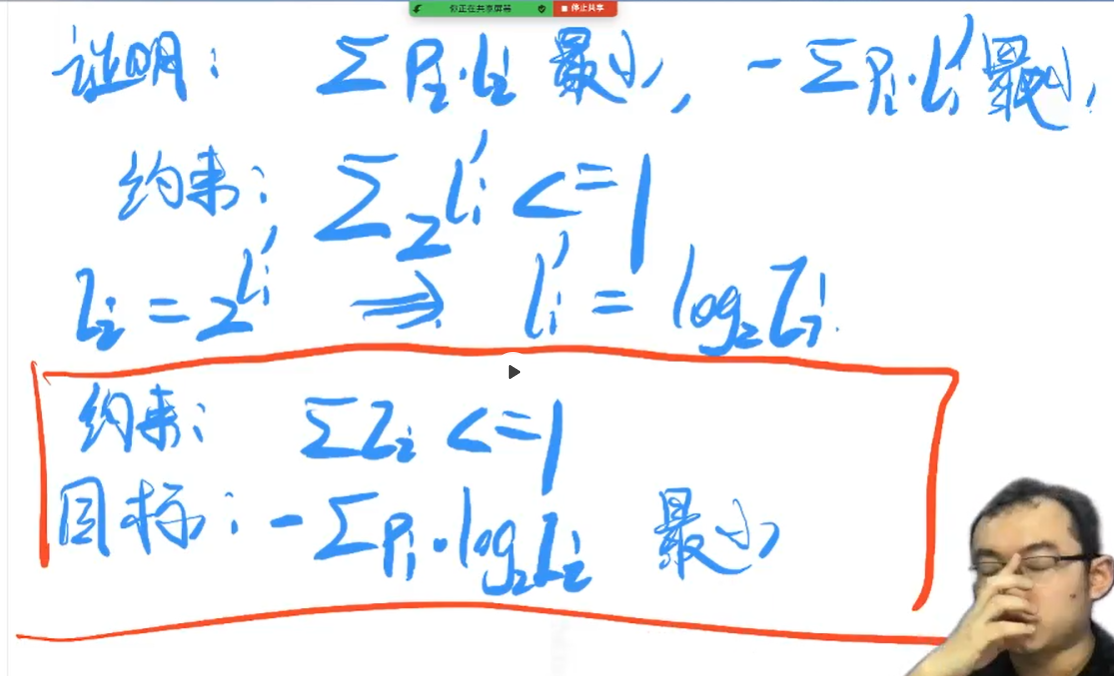 你正在共享屏幕 停止共享
证明: ΣPᵢ·lᵢ 最小, -ΣPᵢ·lᵢ' 最小,
约束: Σ2^lᵢ' <= 1
Iᵢ = 2^lᵢ' ⇒ lᵢ' = log₂Iᵢ
约束: ΣIᵢ <= 1
目标: -ΣPᵢ·log₂Iᵢ 最小